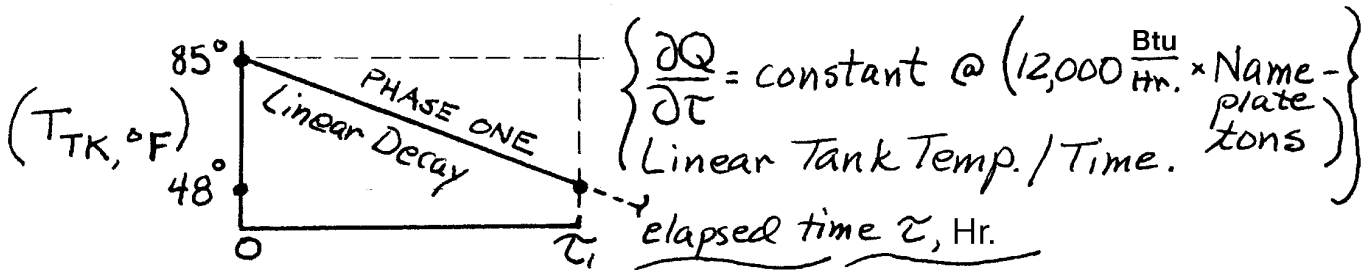 85°
(T_TK, °F)
48°
0
τ₁
PHASE ONE
Linear Decay
{∂Q/∂τ = constant @ (12,000 Btu/Hr. × Name-
plate
tons)
Linear Tank Temp./Time.}
elapsed time τ, Hr.